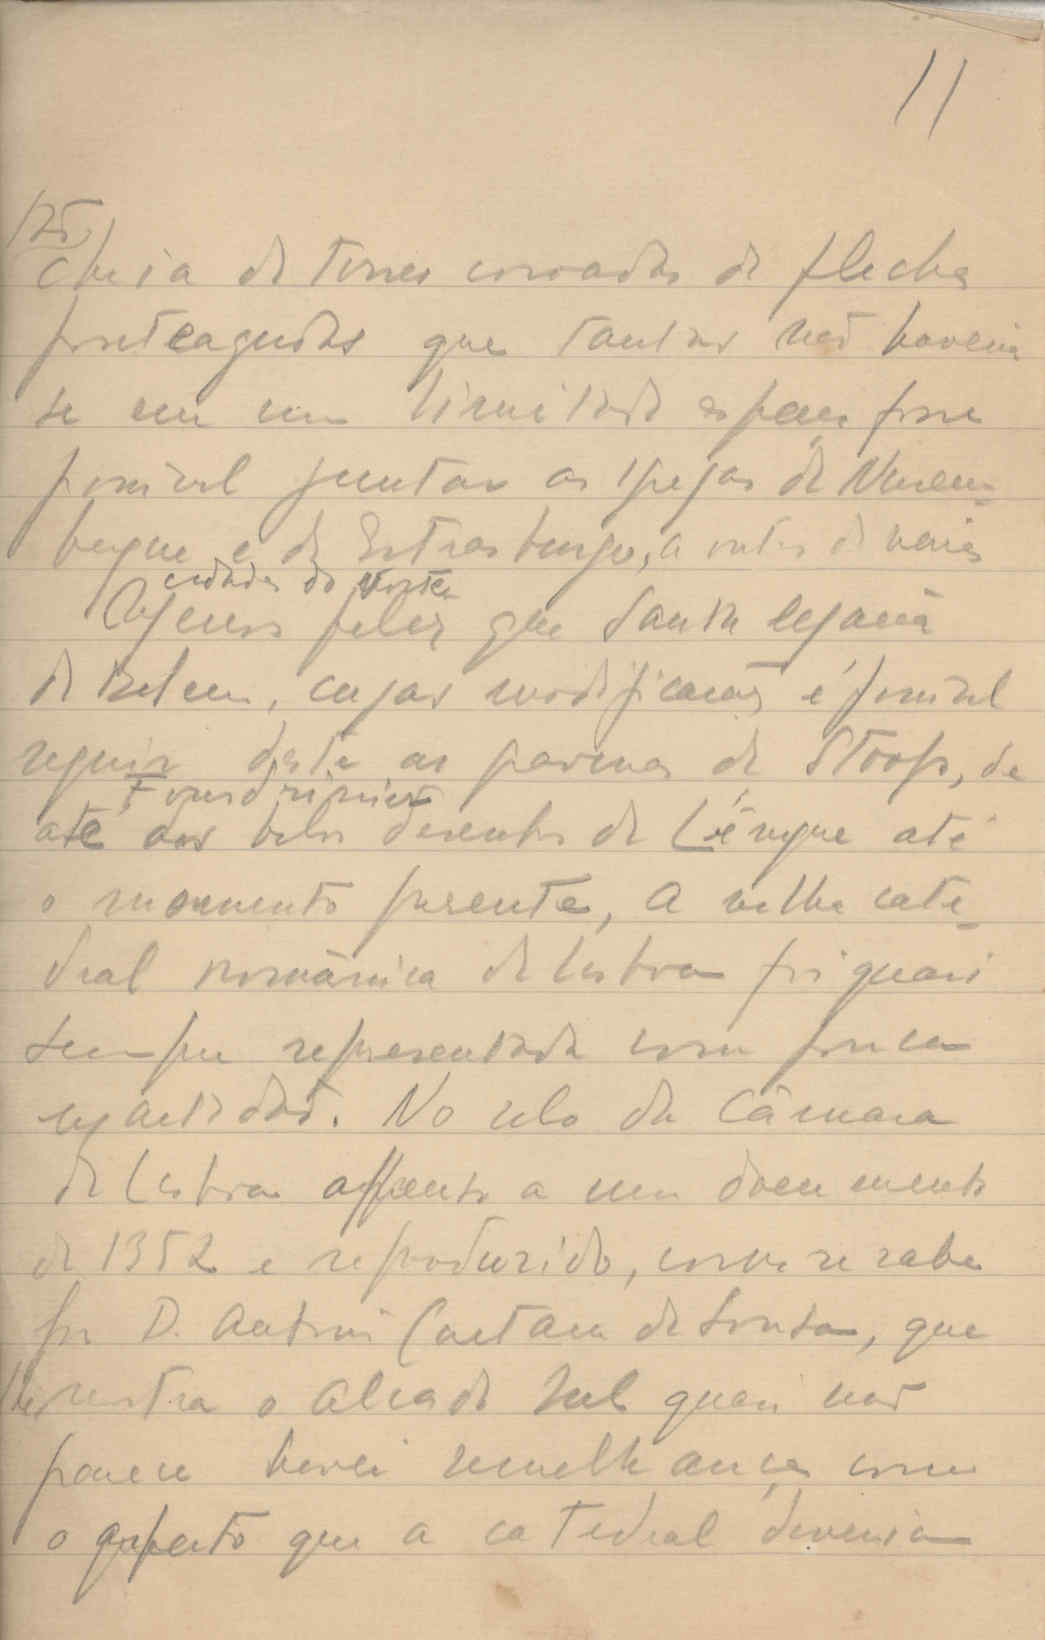 11
125
cheia de torres coroadas de flechas
ponteagudas que tantas não haveria
se em um limitado espaço fosse
possivel juntar as Igrejas de Nurem-
bergue e de Estrasburgo, a outras de varias
cidades do Norte.
Menos feliz que Santa Maria
de Belem, cujas modificações é possivel
seguir desde as gravuras de Stoop, de
até aos belos desenhos de L'Evêque até
o momento presente, a velha cate-
dral românica de Lisboa foi quasi
sempre representada com pouca
exactidão. No selo da Câmara
de Lisboa appenso a um documento
de 1352 e reproduzido, como se sabe
por D. Antonio Caetano de Sousa, que
mostra o alçado sul quasi não
parece haver semelhança com
o aspecto que a catedral deveria